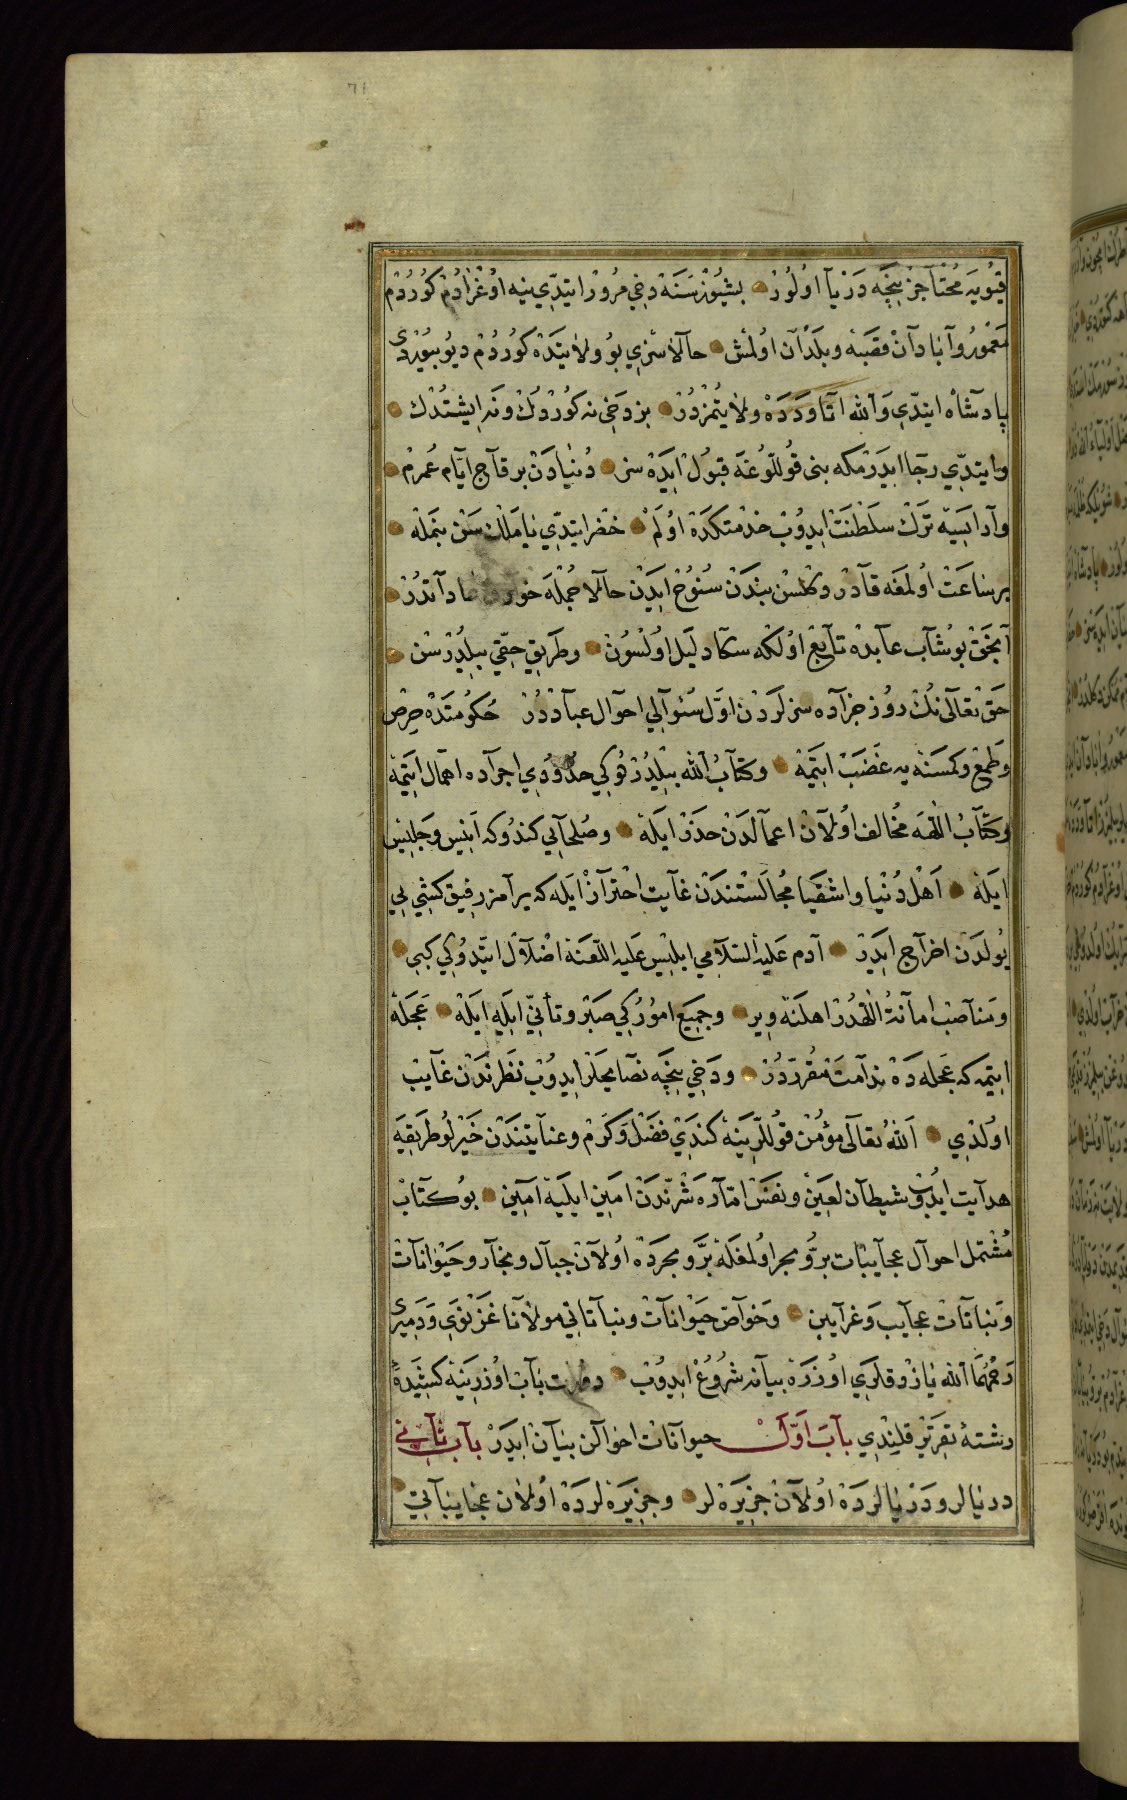 قیُویَه مُحْتَاجْز نیجَه دَرْیَا اوُلوُر بشیوُز سَنَه دخی مُروُر ایتدِی ینه اوُغْرَادُم کوُردُم
مَعْموُر وآبادَان قصَبَه وبلَدَان اوُلمش حالا سزی بوُ ولایتدَه کوُردُم دیوُ بیوُردی
پادشاه ایتدِی وَالله اتا ودَدَه ولایتمزدُر بز دَخِی نه کوُردُك ونَه ایشتدُك
وایتدِی رجَا ایدَرمکه بنی قوُللوُغَه قبوُل ایدَه سز دُنیادَن بر قاج ایّام عُمرم
وارایسَه ترَك سلطَنَت ایدوُب خذمتکدَه اوُلَم خضر ایتدِی یا مَلك سَن بیَمله
برساعَت اوُلمغه قادر دکلسن بندَن سُنوُح ایدَن حالا جُمْله
آنجَق بوُ شاب عابده تابع اوُلکه سکا دلیل اوُلسوُن وطَریقِ حقّی بیلدُرسن
حَق تعالی نك روُز جزاده سزلَردن اوَّل سُئوالی احوال عباددُر حکوُمتدَه حِرص
وطَمع وکمسَنه یه غَضَب ایتمَیَه وکتابُ الله بیلدُردوُکی حدُودی اجراده اهمال ایتمَیه
وکتابُ اللّٰهَه مُخالف اوُلان اعمالدَن حذَر ایلَه وصُلحایی کندوُکه اَنیس وجَلیس
ایلَه اَهْل دُنیا واشقیا مُجالَستندَن غایت احتراز ایله که یرامز رفیق کشی یی
یوُلدَن اخراج ایدَر آدم عَلیهِ السّلامی ابلیس علیه اللّعنَة اضْلال ایتدوُکی کبی
ومَناصب امانةُ اللّٰهدُر اهلنَه ویر وجمیع اموُرُکی صَبْر وتأنّی ایلَه ایلَه عَجَله
ایتمه که عَجَله دَه ندامَت مُقرّردُر ودَخِی نیجَه نصَایحلَر ایدوُب نظَرندَن غایب
اوُلدی اَللهُ تعالَی مؤمُن قوُللرِینَه کندی فضل وکَرَم وعنایتندَن خیرلوُ طَریقَه
هدایت ایدُب شیطان لعین ونفس امّاره شَرّندَن امین ایلیَه آمین بوُ کتاب
مُشْتمل احوال عجایبات برّ وبحر اوُلمغله برّ وبحردَه اوُلان جبال وبحار وحَیوانات
ونباتات عجایب وَغرایبن وخوَاصّ حیَوانات ونباتاتی مولانا غزنوَی ودَمیری
رَحِمَهُمَا الله یازدقلَری اوُزرَه بیانه شرُوُع ایدوُب دورت باب اوُزرینَه کشیدَهٔ
رشتهٔ تقریَر قلندی بابَ اَوّل حیوانات احوالن بیَان ایدَر باب ثانی
دریالر ودَریالردَه اوُلان جَزیرَه لر وجزیرَه لردَه اوُلان عجایباتی